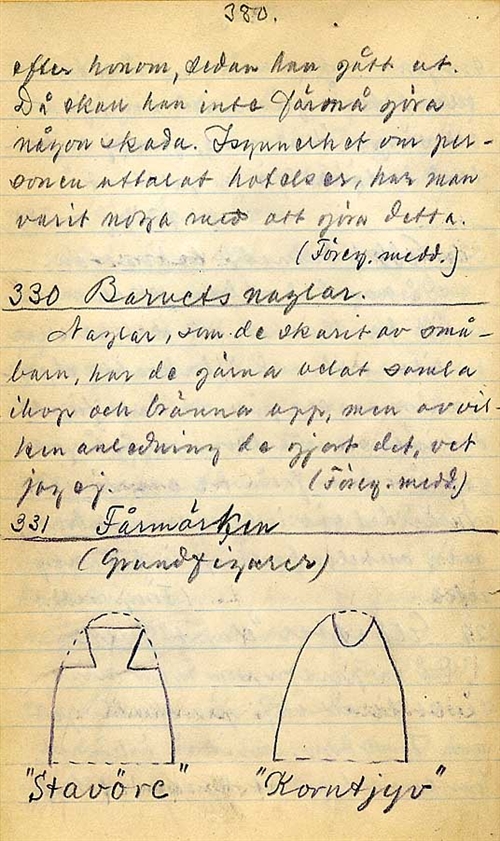 380.
efter honom, sedan han gått ut.
Då skall han inte förmå göra
någon skada. Isynnerhet om per-
sonen uttalat hotelser, har man
varit noga med att göra detta.
(Föreg. medd.)
330 Barnets naglar.
Naglar, som de skarit av små-
barn, har de gärna velat samla
ihop och bränna upp, men av vil-
ken anledning de gjort det, vet
jag ej. (Föreg. medd.)
331 Fårmärken
(Grundfigurer)
"Stavöre" "Korntjyv"